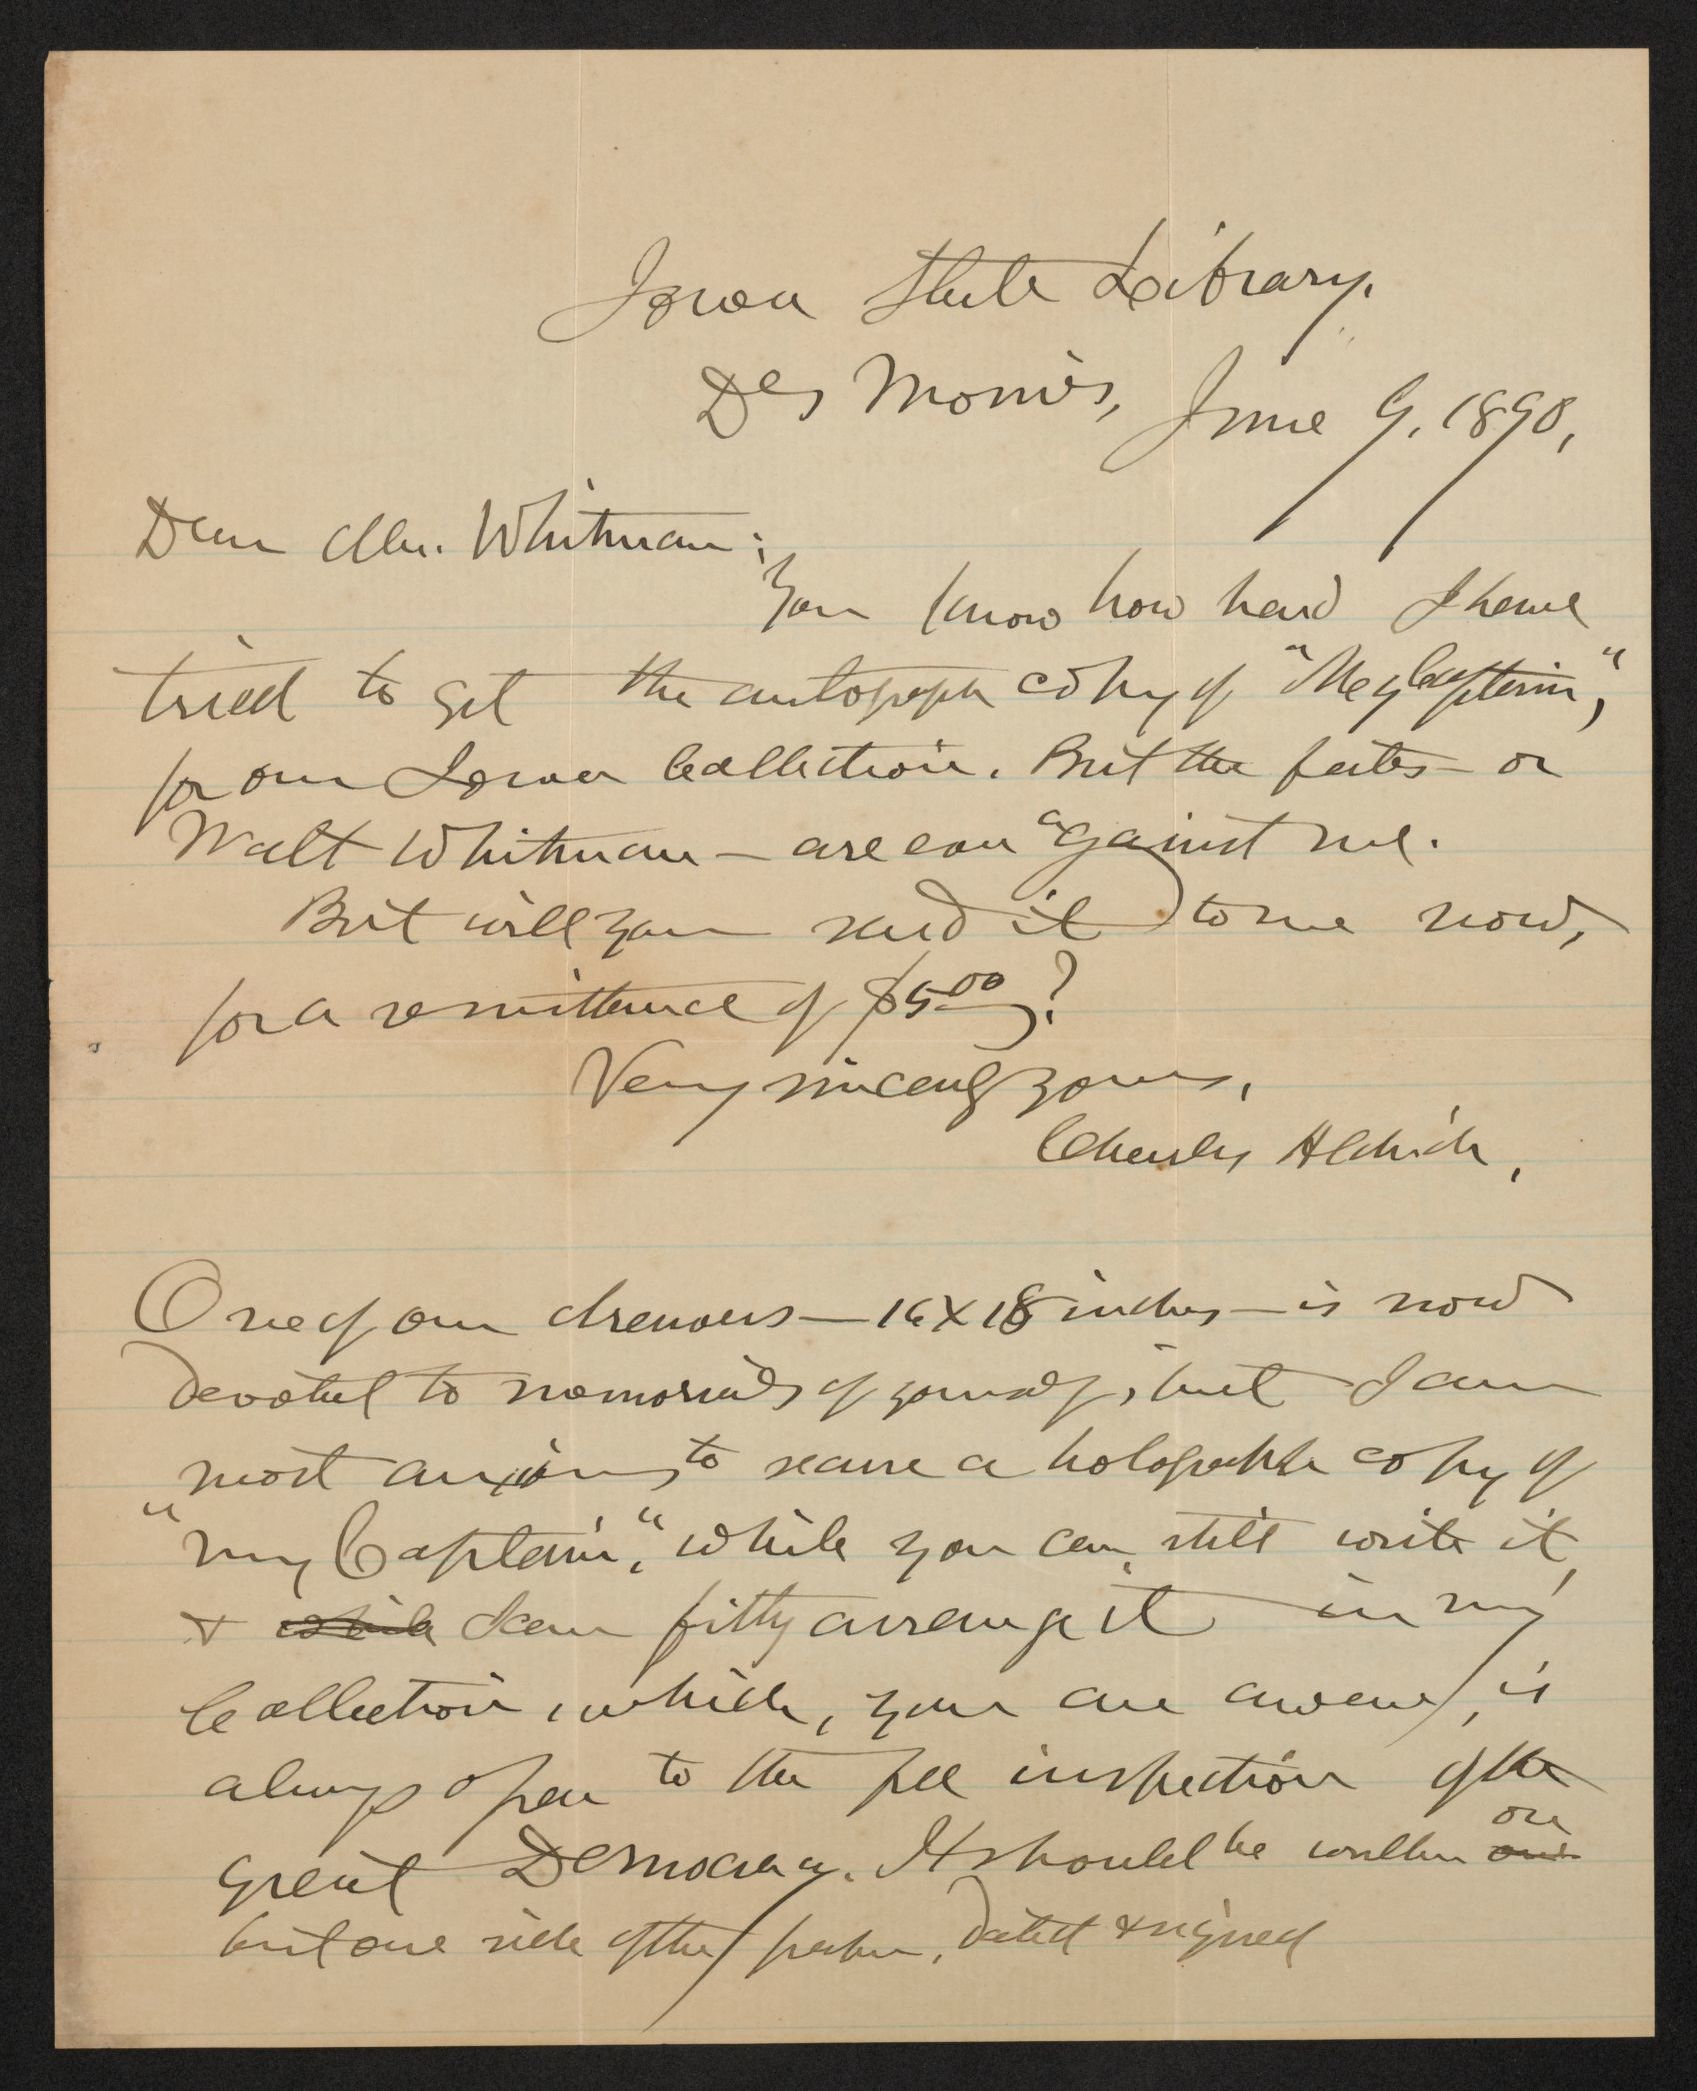 Iowa State Library.
Des Moines, June 9, 1890,
Dear Mr. Whitman:
You know how hard I have
tried to get the autograph copy of "My Captain",
for our Iowa Collection. But the fates — or
Walt Whitman — are against me.
But will you send it to me now,
for a remittance of $5.00?
Very sincerely yours,
Charles Aldrich,
One of our drawers — 16 X 18 inches — is now
devoted to memorials of yourself, but I am
most anxious to secure a holograph copy of
"my Captain", while you can still write it,
& while I can fitly arrange it in my
Collection, which, you are aware, is
always open to the free inspection of the
great Democracy. It should be written on
but one side of the paper, dated & signed